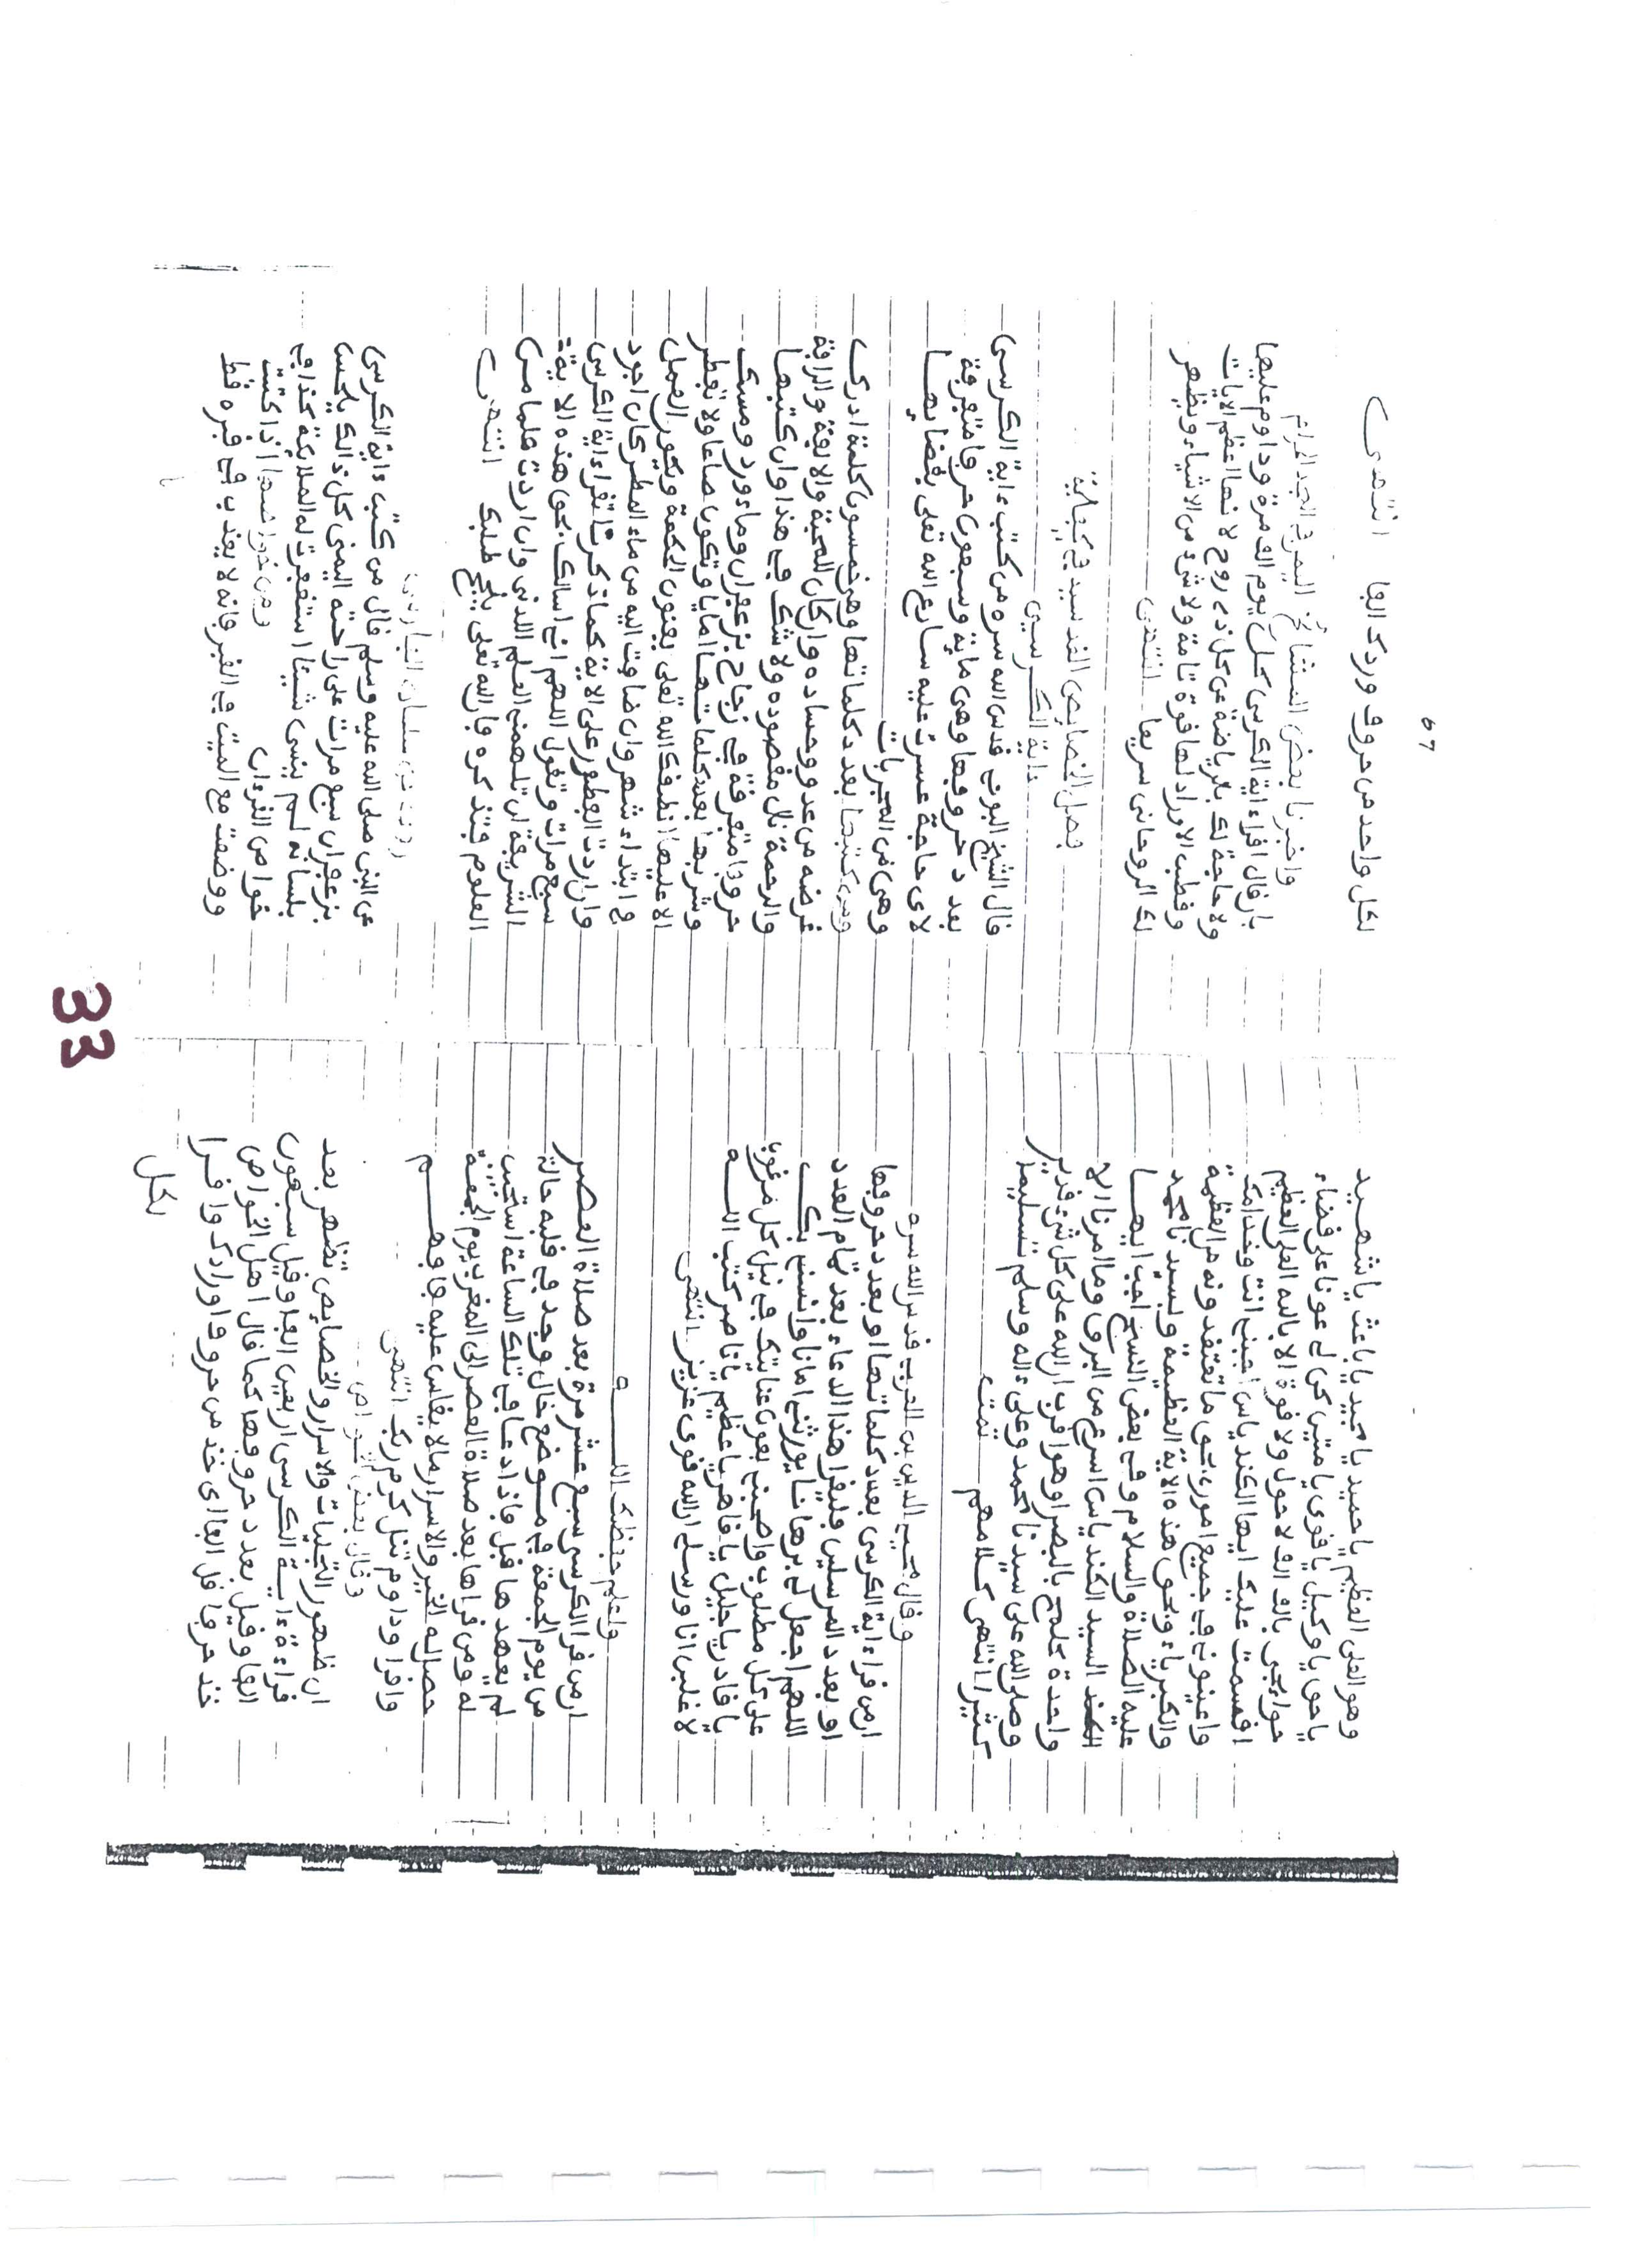 وهو العلى العظيم يا حميد يا مجيد يا باعث يا شهيد
يا حق يا وكيل يا قوى يا متين كن لى عونا على قضاء
حوائجى بالف الف لا حول ولا قوة الا بالله العلى العظيم
اقسمت عليك ايها الكندياس اجبنى انت وخدامك
واعينونى فى جميع امورى بحق ما تعتقدونه من العظمة
والكبرياء وبحق هذه الاية العظيمة وبسيدنا محمد
عليه الصلاة والسلام وفى بعض النسخ اجب ايها
السيد الكندياس اسرع من البرق وما امرنا الا
واحدة كلمح بالبصر او هو اقرب ان الله على كل شىء قدير
وصلى الله على سيدنا محمد وعلى ءاله وسلم تسليما
كثيرا انتهى كلامهم تمت
وقال محيى الدين بن العربى قدس الله سره
ان من قراءاية الكرسى بعدد كلماتها او بعدد حروفها
او بعدد المرسلين فليقرا هذا الدعاء بعد تمام العدد
اللهم اجعل لى برهانا يورثنى امانا وانسنى بك
على كل مطلوب واصحبنى بعون عنايتك فى نيل كل مرغوب
يا قادر يا جليل يا قاهر يا عظيم يا ناصر كتب الله
لاغلبن انا ورسلى ان الله قوى عزيز انتهى
واعلم حفظك الله
ان من قرا الكرسى سبع عشر مرة بعد صلاة العصر
من يوم الجمعة فى موضع خال وجد فى قلبه حالة
لم يعهدها قبل فاذا دعا فى تلك الساعة استجيب
له ومن قراها بعد صلاة العصر الى المغرب يوم الجمعة
حصل له الخير والاسرار ما لا يقاس عليه فافهم
واقرا وداوم تنل كرم ربك انتهى
وقال بعض الخواص
ان ظهور التجليات والاسرار والخصايص تظهر بعد
قراءة ءاية الكرسى اربعين الفا وقيل سبعون
الفا وقيل بعدد حروفها كما قال اهل الخواص
خذ حرفا قل الفا اى خذ من حروف اورادك واقرا
لكل
67
لكل واحد من حروف وردك الفا انتهى
واخبرنا بعض المشائخ
بان قال اقرا ءاية الكرسى كل يوم الف مرة وداوم عليها
ولا حاجة لك بالرياضة عن كل ذى روح لانها اعظم الايات
وقطب الاوراد لها قوة تامة ولا شىء من الاشياء ويظهر
لك الروحانى سريعا انتهى
فصل الخصايص القدسية فى كيفية
ءاية الكرسى
قال الشيخ البونى قدس الله سره من كتب ءاية الكرسى
بعدد حروفها وهى ماية وسبعون حرفا متفرقة
لاى حاجة عسرت عليه سارع الله تعلى بقضايها
وهى من المجربات
ومن كتبها بعدد كلماتها وهى خمسون كلمة ادرك
غرضه من عدو وحساده وان كان للمحبة والالفة والرافة
والرحمة نال مقصوده ولا شك فى هذا وان كتبها
حروفا متفرقة فى زجاج بزعفران وماء ورد ومسك
وشربها بعدد كلماتها اياما ويكون صائما ولا يفطر
الا عليها انطقه الله تعلى بفنون الحكمة ويكون العمل
فى ابتداء شهر وان ضاف اليه من ماء المطر كان اجود
وان اردت الفطور على الاية كما ذكرنا تقرا ءاية الكرسى
سبع مرات وتقول اللهم انى اسالك بحق هذه الاية
الشريفة ان تلهمنى العلم اللدنى وان اردت علما من
العلوم فتذكره فان الله تعلى ينجح طلبك انتهى
وعن سلمان الفارسى
عن النبى صلى الله عليه وسلم قال من كتب ءاية الكرسى
بزعفران سبع مرات على راحته اليمنى كل ذالك يلحس
بلسانه لم ينس شيئا استغفرت له الملائكة كذا فى
خواص القرءان ومن خواصها اذا كتبت
ووضعت مع الميت فى القبر فانه لا يعذب فى قبره قط
33